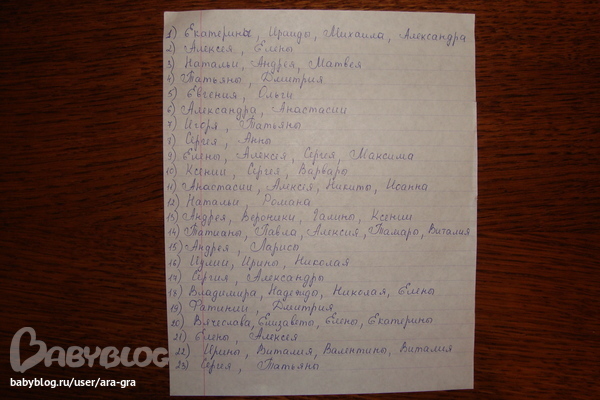 1) Екатерины, Ираиды, Михаила, Александра
2) Алексея, Елены
3) Натальи, Андрея, Матвея
4) Татьяны, Дмитрия
5) Евгения, Ольги
6) Александра, Анастасии
7) Игоря, Татьяны
8) Сергия, Анны
9) Елены, Алексея, Сергея, Максима
10) Ксении, Сергия, Варвары
11) Анастасии, Алексея, Никиты, Иоанна
12) Натальи, Романа
13) Андрея, Вероники, Галины, Ксении
14) Татианы, Павла, Алексия, Тамары, Виталия
15) Андрея, Ларисы
16) Иулии, Ирины, Николая
17) Сергия, Александры
18) Владимира, Надежды, Николая, Елены
19) Фатинии, Дмитрия
20) Вячеслава, Елизаветы, Елены, Екатерины
21) Елены, Алексея
22) Ирины, Виталия, Валентины, Виталия
23) Сергия, Татьяны
BABYBLOG
babyblog.ru/user/ara-gra